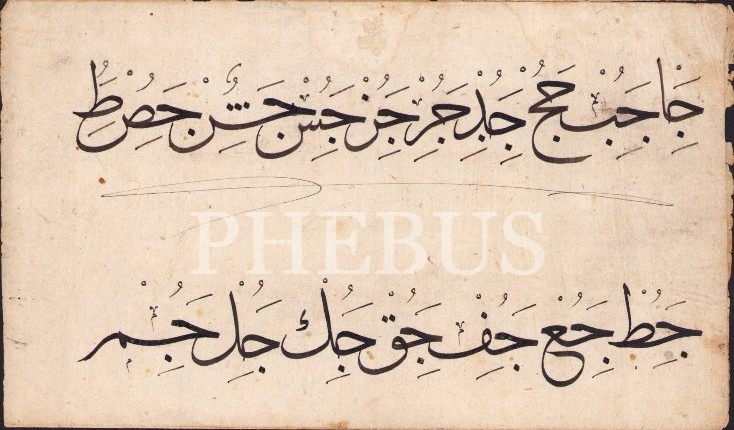 جا جب جج جد جر جز جس جش جص ط
PHEBUS
جط جع جف جق جك جل جم